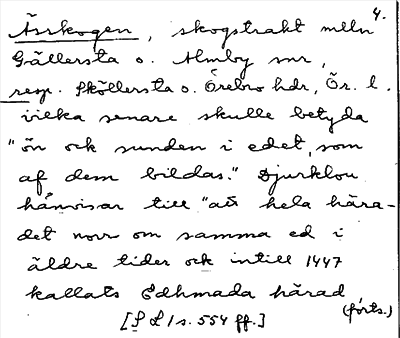 4.
Ässkogen, skogstrakt mlln
Gällersta o. Almby snr,
resp. Sköllersta o. Örebro hdr, Ör. l.
vilka senare skulle betyda
"ön och sunden i edet, som
af dem bildas." Djurklou
hänvisar till "att hela hära-
det norr om samma ed i
äldre tider och intill 1447
kallats Edhmada härad
(forts.)
[S L 1 s. 554 ff.]